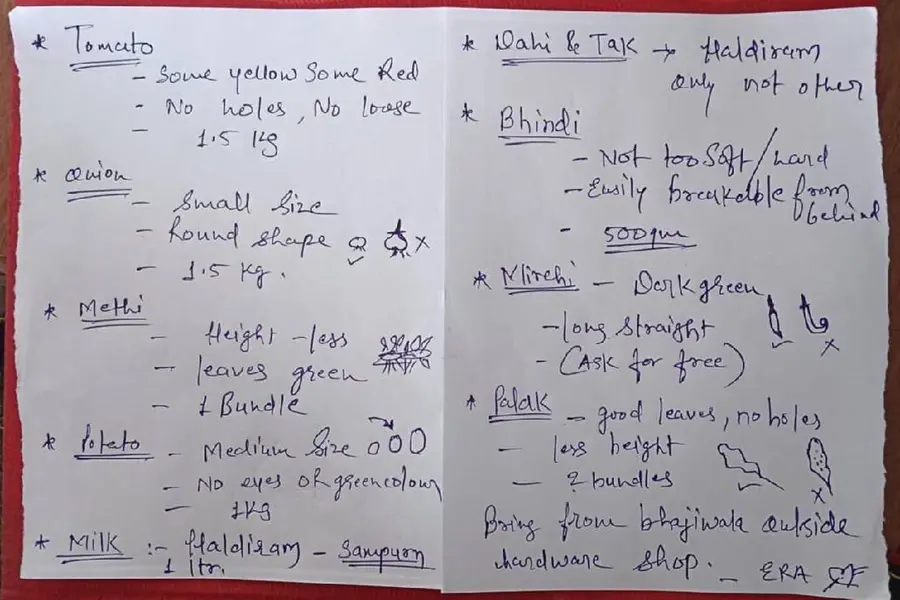 * Tomato
- Some yellow Some Red
- No holes, No loose
- 1.5 kg
* Onion
- Small Size
- Round shape
- 1.5 kg.
* Methi
- Height - less
- leaves green
- 1 Bundle
* Potato - Medium Size
- No eyes or green colour
- 1kg
* Milk :- Haldiram - Sampurn
1 ltr.
* Dahi & Tak → Haldiram
only not other
* Bhindi
- Not too Soft/hard
- Easily breakable from
behind
- 500gm
* Mirchi - Dark green
- long straight
- (Ask for free)
* Palak - good leaves, no holes
- less height
- 2 bundles
Bring from bhajiwala outside
hardware shop. - ERA